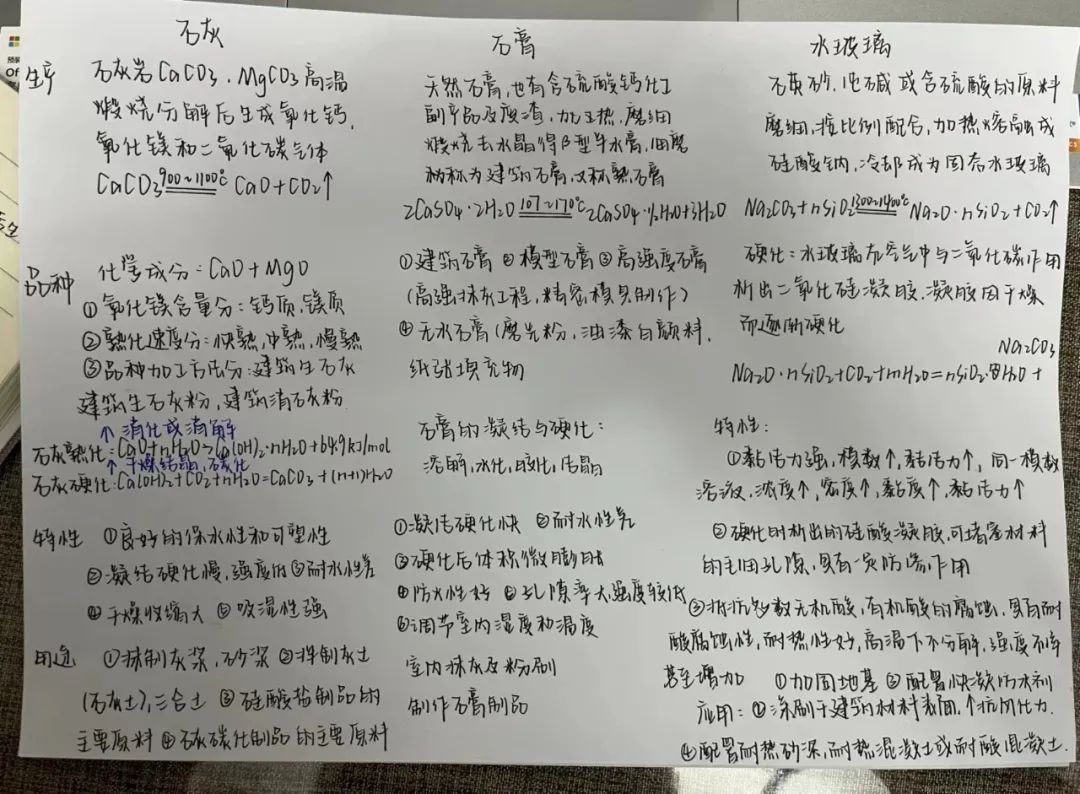 石灰
生产 石灰岩CaCO3、MgCO3高温
煅烧分解后生成氧化钙,
氧化镁和二氧化碳气体
CaCO3 900~1100℃ CaO+CO2↑
品种 化学成分:CaO+MgO
①氧化镁含量分:钙质,镁质
②熟化速度分:快熟,中熟,慢熟
③品种加工方法分:建筑生石灰
建筑生石灰粉,建筑消石灰粉
↑消化或消解
石灰熟化:CaO+nH2O→Ca(OH)2·nH2O+64.9kJ/mol
↑干燥结晶,碳化
石灰硬化:Ca(OH)2+CO2+nH2O=CaCO3+(n+1)H2O
特性 ①良好的保水性和可塑性
②凝结硬化慢,强度低③耐水性差
④干燥收缩大 ⑤吸湿性强
用途 ①抹制灰浆,砂浆 ②拌制灰土
(石灰土),三合土 ③硅酸盐制品的
主要原料④石灰碳化制品的主要原料
石膏
天然石膏,也有含硫酸钙化工
副产品及废渣,加工热.磨细
煅烧去水晶得β型半水膏,细磨
粉称为建筑石膏,又称熟石膏
2CaSO4·2H2O 107~170℃ 2CaSO4·½H2O+3H2O
①建筑石膏 ②模型石膏③高强度石膏
(高强抹灰工程,精密模具制作)
④无水石膏(磨光粉,油漆白颜料,
纸张填充物
石膏的凝结与硬化:
溶解,水化,胶化,结晶
①凝结硬化快 ②耐水性差
③硬化后体积微膨胀
④防火性好 ⑤孔隙率大强度较低
⑥调节室内湿度和温度
室内抹灰及粉刷
制作石膏制品
水玻璃
石英砂,纯碱或含硫酸的原料
磨细,按比例配合,加热熔融成
硅酸钠,冷却成为固态水玻璃
Na2CO3+nSiO2 1300~1400℃ Na2O·nSiO2+CO2↑
硬化:水玻璃在空气中与二氧化碳作用
析出二氧化硅凝胶,凝胶因干燥
而逐渐硬化
Na2CO3
Na2O·nSiO2+CO2+mH2O=nSiO2·H2O+
特性:
①黏结力强,模数↑,黏结力↑,同一模数
溶液,浓度↑,密度↑,黏度↑,黏结力↑
②硬化时析出的硅酸凝胶,可堵塞材料
的毛细孔隙,具有一定防渗作用
③抵抗多数无机酸,有机酸的腐蚀,具有耐
酸腐蚀性,耐热性好,高温下不分解,强度不降
甚至增加 ①加固地基 ③配置快凝防水剂
应用:②涂刷于建筑材料表面,↑抗风化力.
④配置耐热砂浆,耐热混凝土或耐酸混凝土.